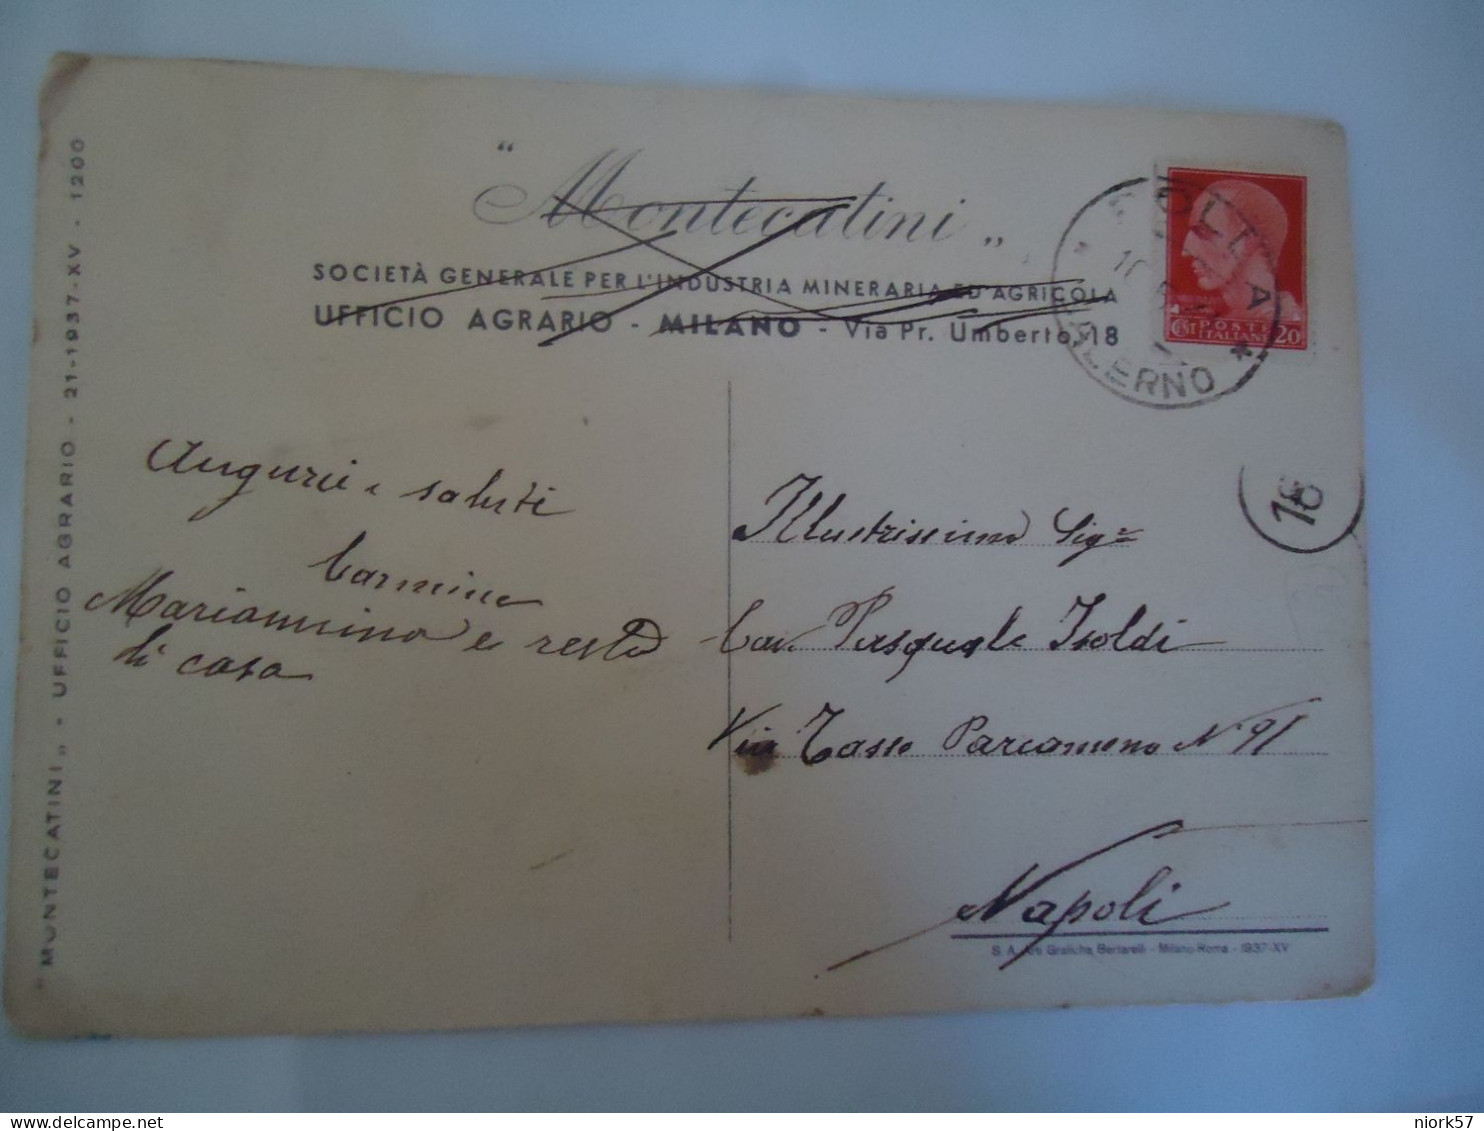 "Montecatini„
SOCIETÀ GENERALE PER L'INDUSTRIA MINERARIA ED AGRICOLA
UFFICIO AGRARIO - MILANO - Via Pr. Umberto, 18
POSTE
ITALIANE
CENT 20
SALERNO
16
Auguri e saluti
Carmine
Mariannina e resto
di casa
Illustrissimo Sigr
Cav. Pasquale Isoldi
Via Tasso Parcomeno N. 91
Napoli
S. A. Arti Grafiche Bertarelli - Milano-Roma - 1937-XV
"MONTECATINI„ - UFFICIO AGRARIO - 21-1937-XV - 1200
niork57